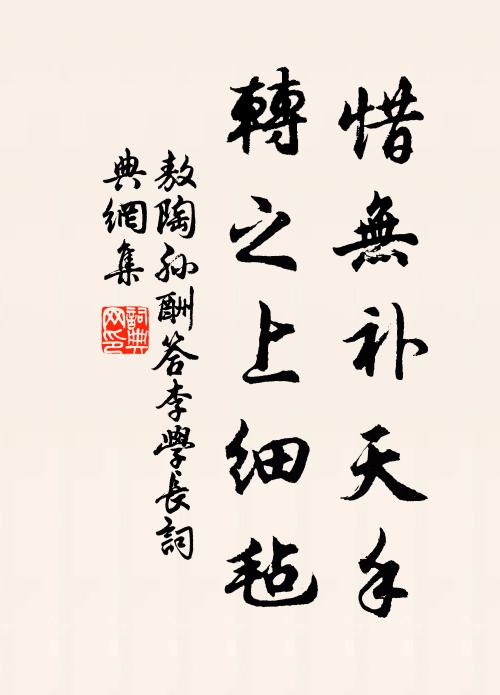 惜無补天手
轉之上細毡
敖陶孙酬答李學長詞
典網集
詞典
网印